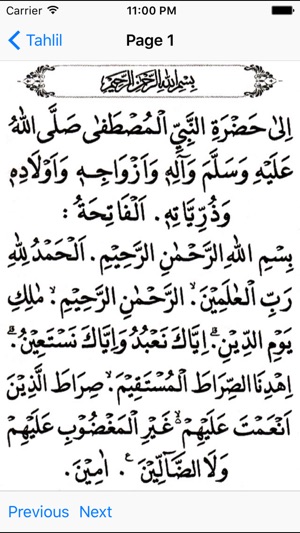 Carrier 11:00 PM
Tahlil Page 1
بِسْمِ اللهِ الرَّحْمٰنِ الرَّحِيْمِ
اِلٰى حَضْرَةِ النَّبِيِّ الْمُصْطَفٰى صَلَّى اللهُ
عَلَيْهِ وَسَلَّمَ وَآلِهٖ وَاَزْوَاجِهٖ وَاَوْلَادِهٖ
وَذُرِّيَّاتِهٖ. اَلْفَاتِحَةُ :
بِسْمِ اللهِ الرَّحْمٰنِ الرَّحِيْمِ. اَلْحَمْدُ لِلّٰهِ
رَبِّ الْعٰلَمِيْنَۙ الرَّحْمٰنِ الرَّحِيْمِۙ مٰلِكِ
يَوْمِ الدِّيْنِۗ اِيَّاكَ نَعْبُدُ وَاِيَّاكَ نَسْتَعِيْنُۗ
اِهْدِنَا الصِّرَاطَ الْمُسْتَقِيْمَۙ صِرَاطَ الَّذِيْنَ
اَنْعَمْتَ عَلَيْهِمْ ۙ غَيْرِ الْمَغْضُوْبِ عَلَيْهِمْ
وَلَا الضَّآلِّيْنَ ۚ. اٰمِيْنَ.
Previous Next